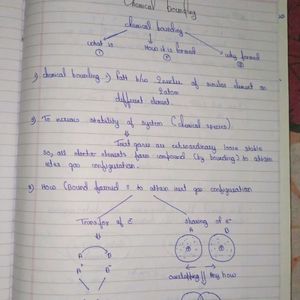 Chemical bounding
chemical bounding
what is How it is formed why formed
① ② ③
1) chemical bounding → b/w 2 nuclei of similar element or
2 atom
different element.
2) To increase stability of system (chemical species)
⇓
Inert gases are extraordinary stable
so, all elements form compound (by bounding) to attain
inert gas configuration.
3) How (Bound formed ? to attain inert gas configuration
Transfer of e⁻ sharing of e⁻
A B
A B
overlapping any how